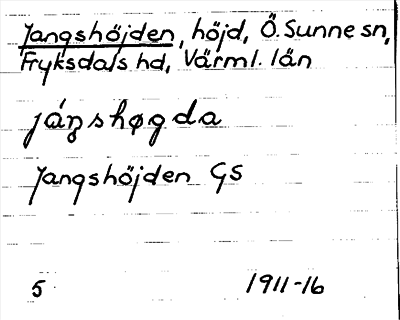 Jangshöjden, höjd, Ö. Sunne sn,
Fryksdals hd, Värml. län
jáŋshøgda
Jangshöjden GS
5 1911-16